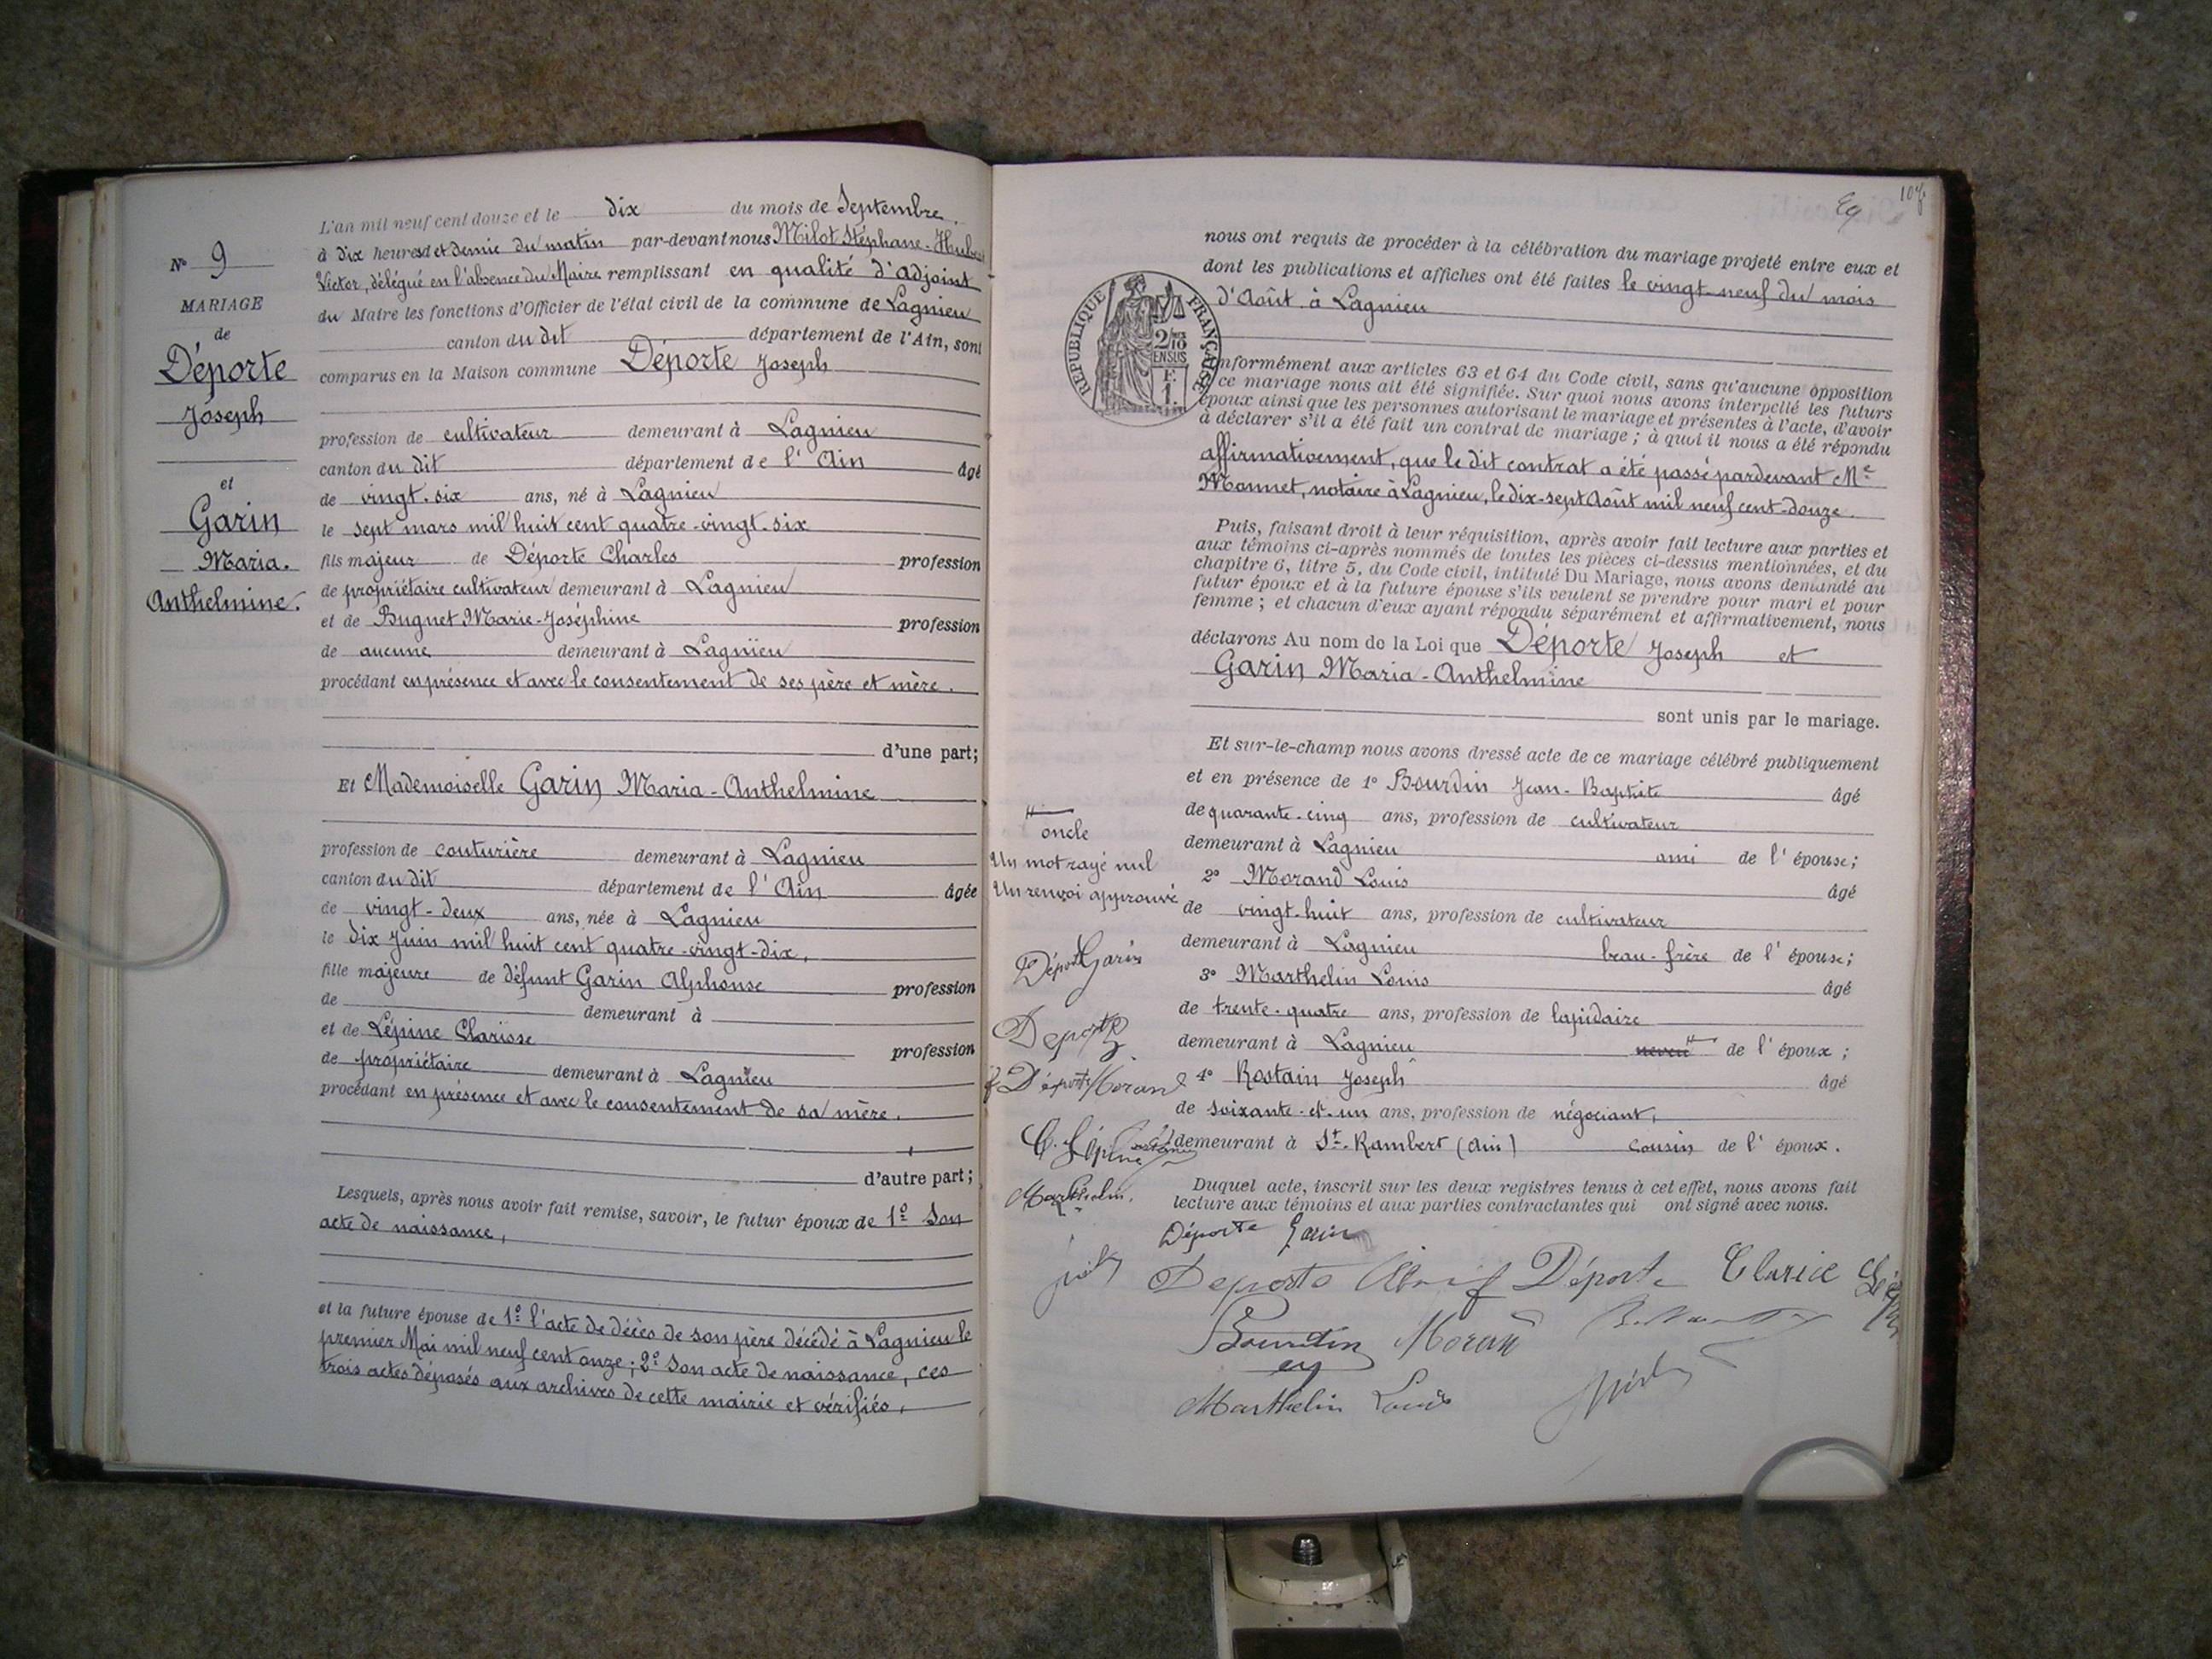 N° 9
MARIAGE
de
Déporte
Joseph
et
Garin
Maria.
Anthelmine.
L'an mil neuf cent douze et le dix du mois de Septembre
à dix heures et demie du matin par-devant nous Milot Stéphane-Hubert
Victor, délégué en l'absence du Maire remplissant en qualité d'adjoint
du Maire les fonctions d'Officier de l'état civil de la commune de Lagnieu
canton du dit département de l'Ain, sont
comparus en la Maison commune Déporte Joseph
profession de cultivateur demeurant à Lagnieu
canton du dit département de l'Ain âgé
de vingt-six ans, né à Lagnieu
le sept mars mil huit cent quatre-vingt-six
fils majeur de Déporte Charles profession
de propriétaire cultivateur demeurant à Lagnieu
et de Bugnet Marie-Joséphine profession
de aucune demeurant à Lagnieu
procédant en présence et avec le consentement de ses père et mère.
d'une part;
Et Mademoiselle Garin Maria-Anthelmine
profession de couturière demeurant à Lagnieu
canton du dit département de l'Ain âgée
de vingt-deux ans, née à Lagnieu
le dix Juin mil huit cent quatre-vingt-dix,
fille majeure de défunt Garin Alphonse profession
de demeurant à
et de Lépine Clarisse profession
de propriétaire demeurant à Lagnieu
procédant en présence et avec le consentement de sa mère.
d'autre part;
Lesquels, après nous avoir fait remise, savoir, le futur époux de 1° Son
acte de naissance,
et la future épouse de 1° l'acte de décès de son père décédé à Lagnieu le
premier Mai mil neuf cent onze; 2° Son acte de naissance, ces
trois actes déposés aux archives de cette mairie et vérifiés,
nous ont requis de procéder à la célébration du mariage projeté entre eux et
dont les publications et affiches ont été faites le vingt-neuf du mois
d'Août à Lagnieu
RÉPUBLIQUE FRANÇAISE
2/10
EN SUS
F.
1.
nformément aux articles 63 et 64 du Code civil, sans qu'aucune opposition
ce mariage nous ait été signifiée. Sur quoi nous avons interpellé les futurs
époux ainsi que les personnes autorisant le mariage et présentes à l'acte, d'avoir
à déclarer s'il a été fait un contrat de mariage; à quoi il nous a été répondu
affirmativement, que le dit contrat a été passé pardevant Me
Monnet, notaire à Lagnieu, le dix-sept Août mil neuf cent-douze.
Puis, faisant droit à leur réquisition, après avoir fait lecture aux parties et
aux témoins ci-après nommés de toutes les pièces ci-dessus mentionnées, et du
chapitre 6, titre 5, du Code civil, intitulé Du Mariage, nous avons demandé au
futur époux et à la future épouse s'ils veulent se prendre pour mari et pour
femme; et chacun d'eux ayant répondu séparément et affirmativement, nous
déclarons Au nom de la Loi que Déporte Joseph et
Garin Maria-Anthelmine
sont unis par le mariage.
Et sur-le-champ nous avons dressé acte de ce mariage célébré publiquement
et en présence de 1° Bourdin Jean-Baptiste âgé
de quarante-cinq ans, profession de cultivateur
demeurant à Lagnieu ami de l'épouse;
2° Morand Louis âgé
de vingt-huit ans, profession de cultivateur
demeurant à Lagnieu beau-frère de l'épouse;
3° Marthelin Louis âgé
de trente-quatre ans, profession de lapidaire
demeurant à Lagnieu neveu de l'époux;
4° Rostain Joseph âgé
de soixante-et-un ans, profession de négociant,
demeurant à St-Rambert (Ain) cousin de l'époux.
Duquel acte, inscrit sur les deux registres tenus à cet effet, nous avons fait
lecture aux témoins et aux parties contractantes qui ont signé avec nous.
oncle
Un mot rayé nul
Un renvoi approuvé
Déporte Garin
Deporte
Déporte Morand
C. Lépine
Marthelin.
Déporte Garin
Deporte Déporte Clarice
Bourdin Morand
Marthelin Louis